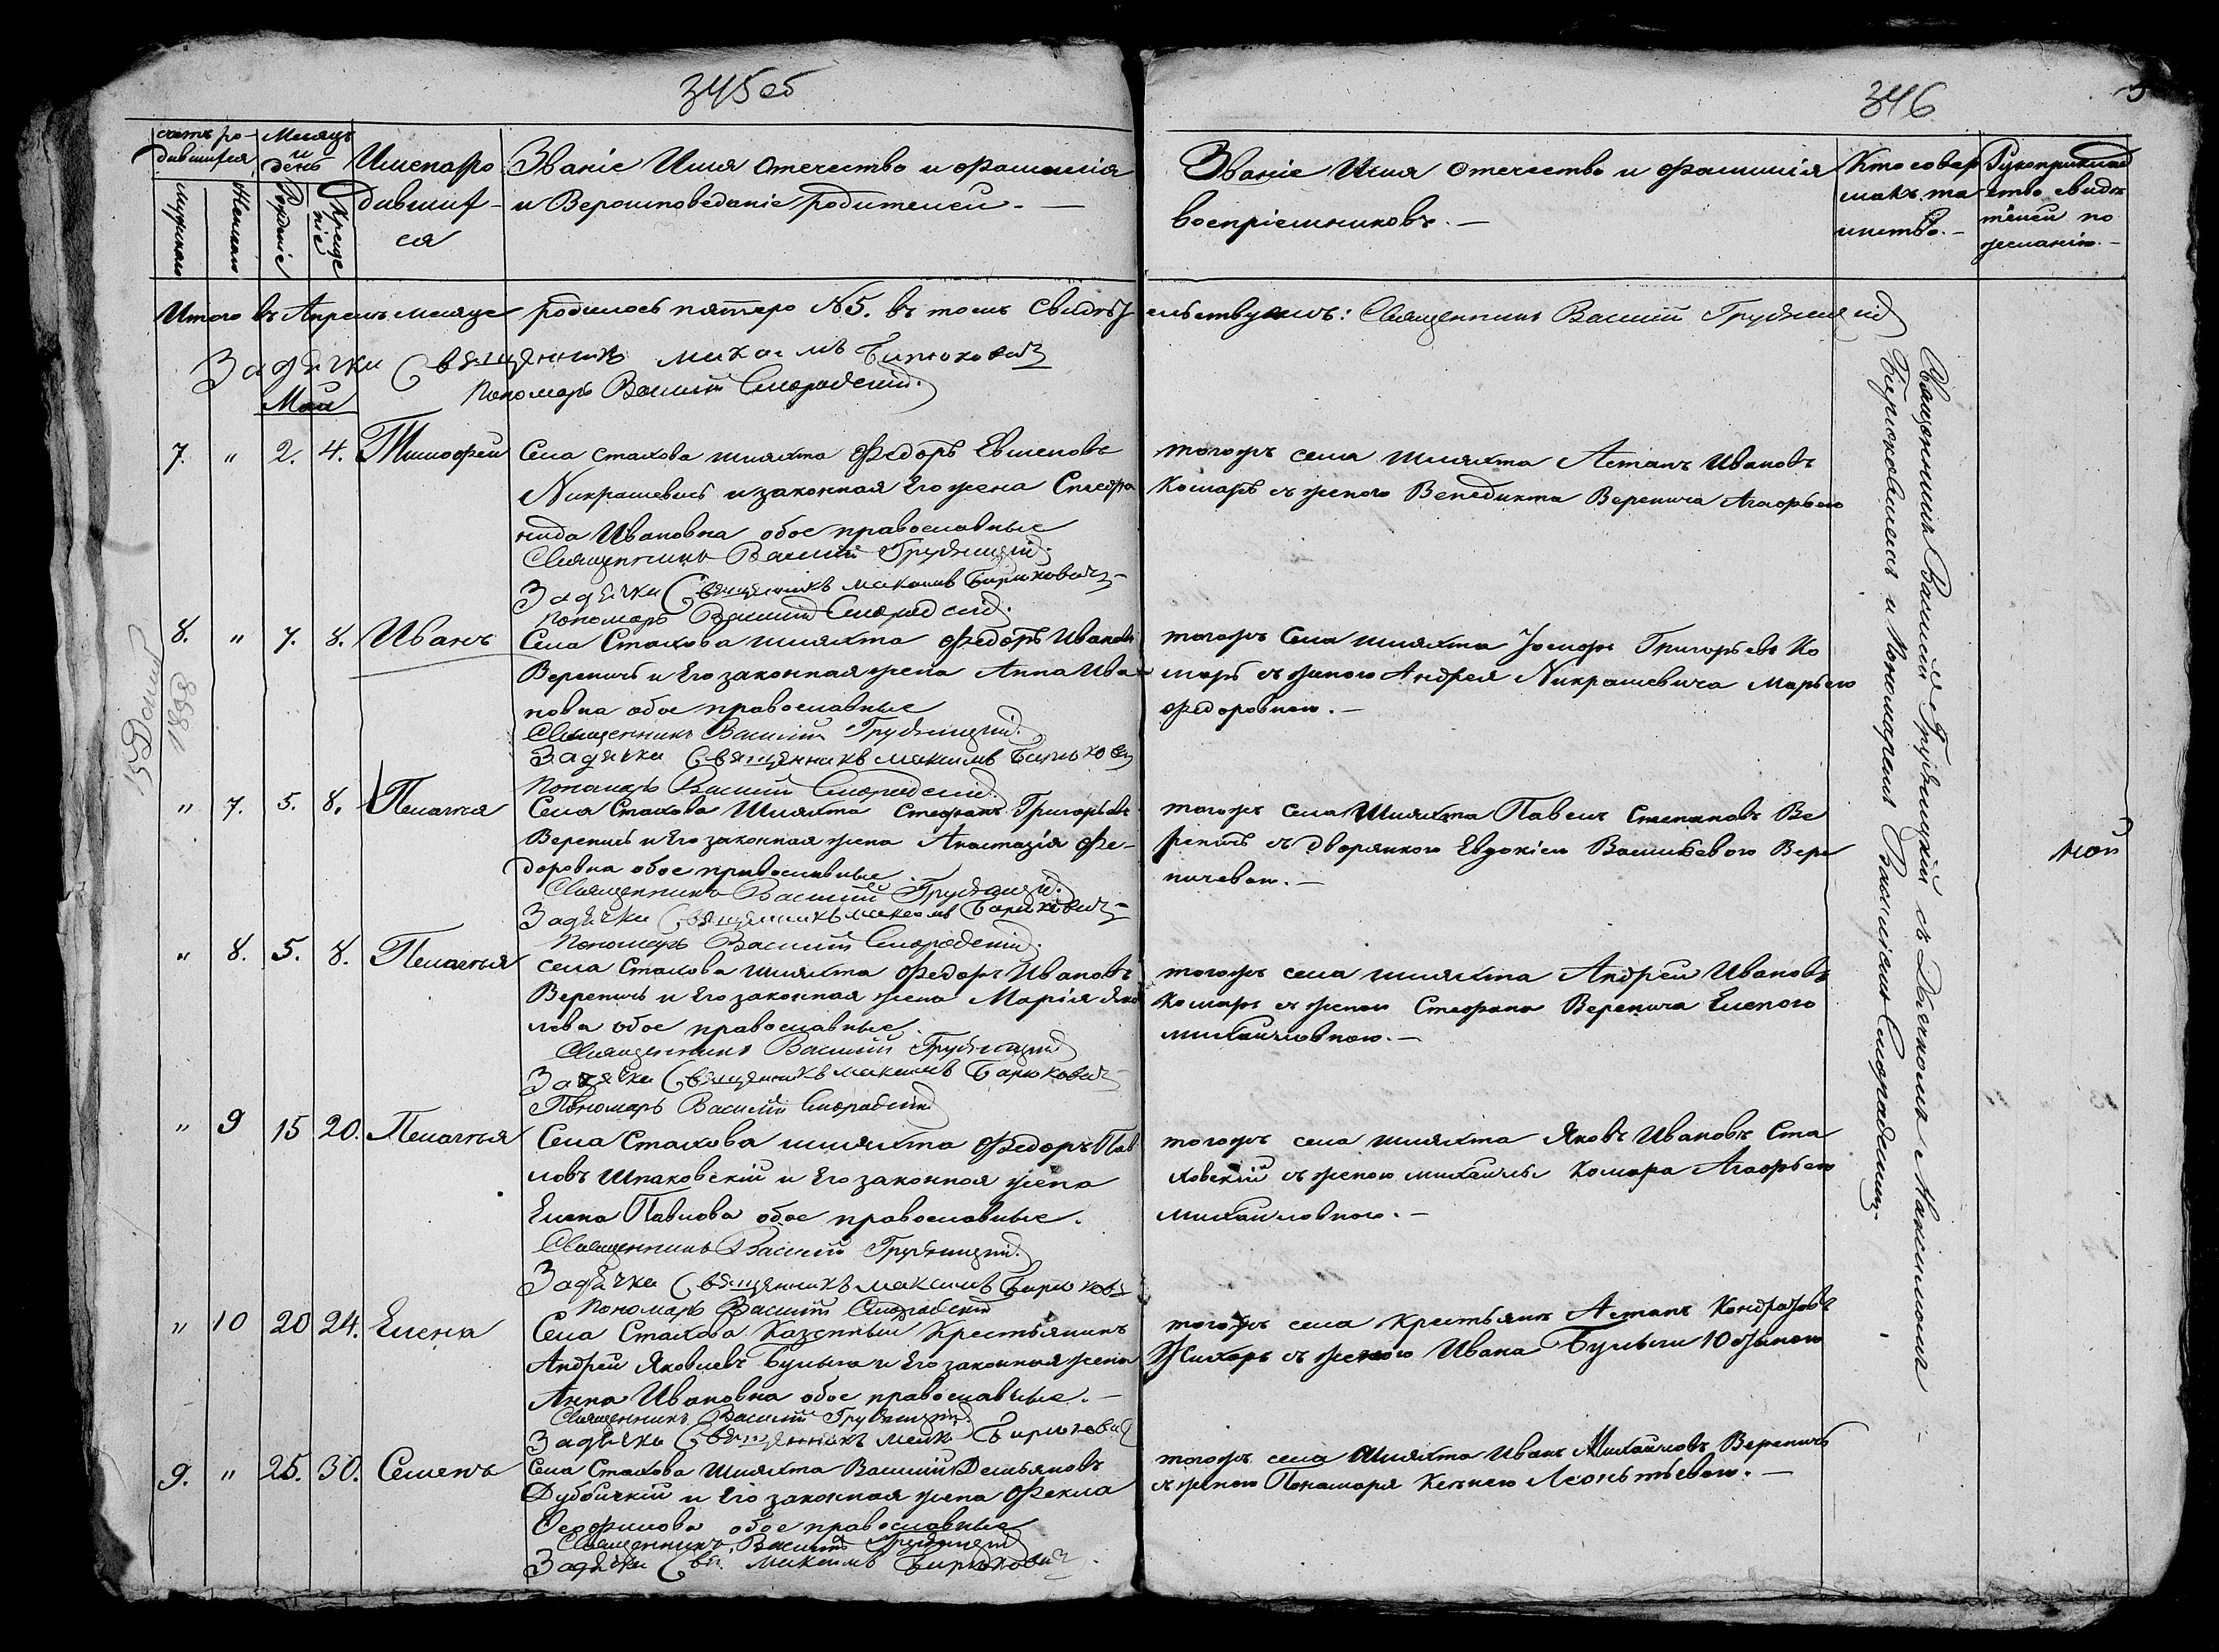 345 об
346
счетъ ро-
дившихся
Месяцъ
и
день
Имена ро
дивших-
ся
Званіе Имя Отечество и Фамилія
и Вероисповеданіе родителей. —
Мужеска
Женска
Рожденіе
Крище
ніе
Званіе Имя Отечество и Фамилія
воспріемниковъ. —
Кто совер
шалъ та
инство. —
Рукоприклад
ство свидѣ
телей по
желанію. —
Итого въ Апрелѣ месяце родилось пятеро N5. въ томъ свидѣтельствуемъ: Священникъ Василій Грудницкій
За дячка Священникъ Бирюковичъ
Пономарь Василій Смородскій.
Май
7. " 2. 4. Тимофей
Села Стахова шляхта Федоръ Евменовъ
Никрашевичъ и законная Его жена Спиеди
нида Ивановна обое православные
Священникъ Василій Грудницкій.
За дячка Священникъ Максимъ Бирюковичъ
Пономарь Василій Смородскій.
тогожъ села шляхта Астапъ Ивановъ
Комаръ съ женою Венедикта Веренича Агафьею
8. " 7. 8. Иванъ
Села Стахова шляхта Федоръ Ивановъ
Вереничъ и Его законная жена Анна Ива
новна обое православные
Священникъ Василій Грудницкій.
За дячка Священникъ Максимъ Бирюкович
Пономарь Василій Смородскій.
тогожъ села шляхта Іосифъ Григорьевъ Ко
маръ съ женою Андрея Никрашевича Марьею
Федоровною. —
15 1858
" 7. 5. 8. Пелагея
Села Стахова Шляхта Стефанъ Григорьевъ
Вереничъ и Его законная жена Анастазія Фе-
доровна обое православные.
Священникъ Василій Грудницкій.
За дячка Священникъ Максимъ Бирюковичъ
Пономарь Василій Смородскій.
тогожъ села Шляхта Павелъ Степановъ Ве
реничъ съ дворянкою Евдокіею Васильевою Вере
ничевою. —
" 8. 5. 8. Пелагея
села Стахова шляхта Федоръ Ивановъ
Вереничъ и Его законная жена Марія Яко
лева обое православные.
Священникъ Василій Грудницкій
За дячка Священникъ Максимъ Бирюкович
Пономарь Василій Смородскій
тогожъ села шляхта Андрей Ивановъ
Комаръ съ женою Стефана Веренича Еленою
Михайловною. —
" 9 15 20. Пелагея
Села Стахова шляхта Федоръ Пав
ловъ Шпаковскій и Его законная жена
Елена Павлова обое православные.
Священникъ Василій Грудницкій.
За дячка Священникъ Максимъ Бирюкови
Пономарь Василій Смородскій
тогожъ села шляхта Яковъ Ивановъ Ста
ховскій съ женою Михаилы Комара Агафьею
Михайловною. —
" 10 20 24. Елена
Села Стахова Казенный Крестьянинъ
Андрей Яковлевъ Булыга и Его законная жена
Анна Ивановна обое православные. —
Священникъ Василій Грудницкій.
За дячка Священникъ Бирюкович
тогожъ села крестьянъ Астапъ Кондратовъ
Жихарь съ женою Ивана Булыги Юліаною
9. " 25. 30. Семенъ
Села Стахова Шляхта Василій Демьяновъ
Дубойскій и Его законная жена Фекла
Феофилова обое православные
Священникъ Василій Грудницкій
За дячка Свя. Максимъ Бирюкович
тогожъ села Шляхта Иванъ Михайловъ Вереничъ
съ женою Понамаря Ксенею Леонтьевою. —
Священникъ Василій Грудницкій съ Дьячкомъ Максимомъ
Бирюковичемъ и Пономаремъ Василіемъ Смородскимъ